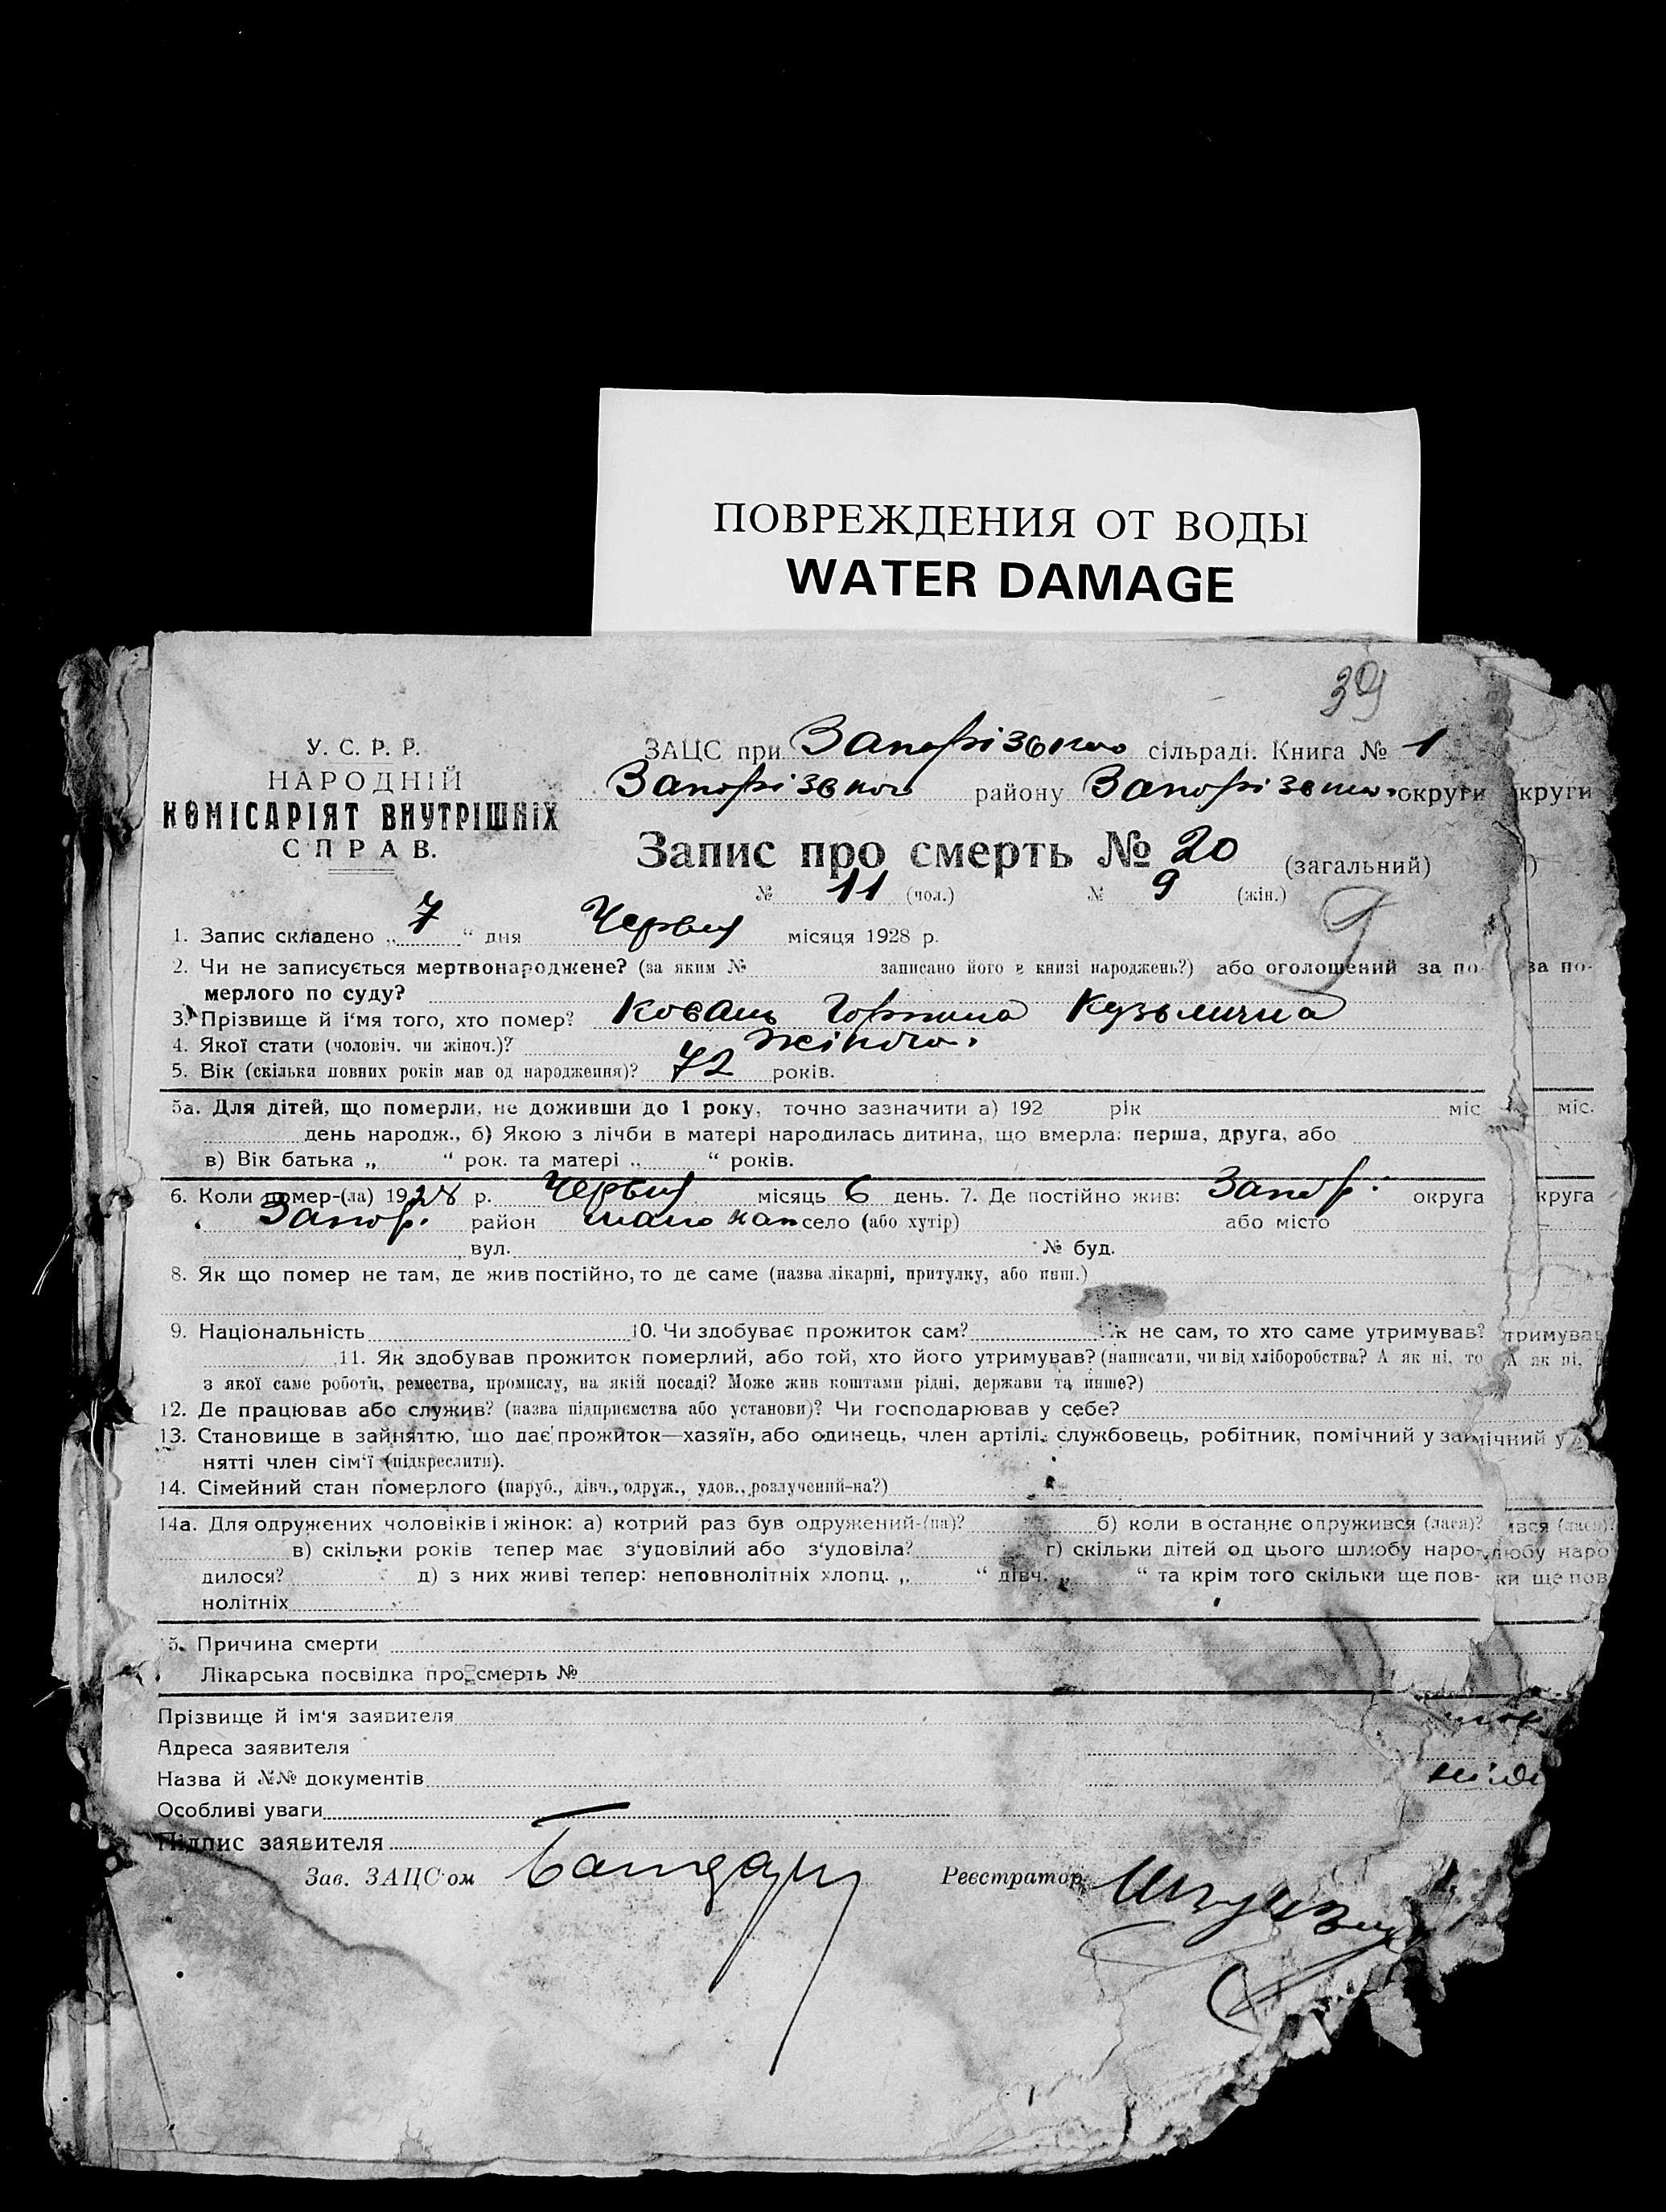 ПОВРЕЖДЕНИЯ ОТ ВОДЫ
WATER DAMAGE
39
У. С. Р. Р.
НАРОДНІЙ
КОМІСАРІЯТ ВНУТРІШНІХ
СПРАВ.
ЗАЦС при Запорізькою сільраді. Книга № 1
Запорізького району Запорізької округи
Запис про смерть № 20 (загальний)
№ 11 (чол.) № 9 (жін.)
9
1. Запис складено „ 7 “ дня Червня місяця 1928 р.
2. Чи не записується мертвонароджене? (за яким № записано його в книзі народжень?) або оголошений за по-
мерлого по суду?
3. Прізвище й і'мя того, хто помер? Коваль Горпина Кузьмична
4. Якої стати (чоловіч. чи жіноч.)? Жіноча.
5. Вік (скільки повних років мав од народження)? 72 років.
5а. Для дітей, що померли, не доживши до 1 року, точно зазначити а) 192 рік міс
день народж., б) Якою з лічби в матері народилась дитина, що вмерла: перша, друга, або
в) Вік батька „ “ рок. та матері „ “ років.
6. Коли помер-(ла) 1928 р. Червня місяць 6 день. 7. Де постійно жив: Запор. округа
Запор. район село (або хутір) або місто
вул. № буд.
8. Як що помер не там, де жив постійно, то де саме (назва лікарні, притулку, або инш.)
9. Національність 10. Чи здобував прожиток сам? к не сам, то хто саме утримував?
11. Як здобував прожиток померлий, або той, хто його утримував? (написати, чи від хліборобства? А як ні, то
з якої саме роботи, ремества, промислу, на якій посаді? Може жив коштами рідні, держави та инше?)
12. Де працював або служив? (назва підприємства або установи)? Чи господарював у себе?
13. Становище в зайняттю, що дає прожиток—хазяїн, або одинець, член артілі, службовець, робітник, помічний у зай-
нятті член сім'ї (підкреслити).
14. Сімейний стан померлого (паруб., дівч., одруж., удов., розлучений-на?)
14а. Для одружених чоловіків і жінок: а) котрий раз був одружений-(на)? б) коли в останнє одружився (лася)?
в) скільки років тепер має з'удовілий або з'удовіла? г) скільки дітей од цього шлюбу наро-
дилося? д) з них живі тепер: неповнолітніх хлопц. „ “ дівч. „ “ та крім того скільки ще пов-
нолітніх
5. Причина смерти
Лікарська посвідка про смерть №
Прізвище й ім'я заявителя
Адреса заявителя
Назва й №№ документів
Особливі уваги
Підпис заявителя
Зав. ЗАЦС'ом Реєстратор